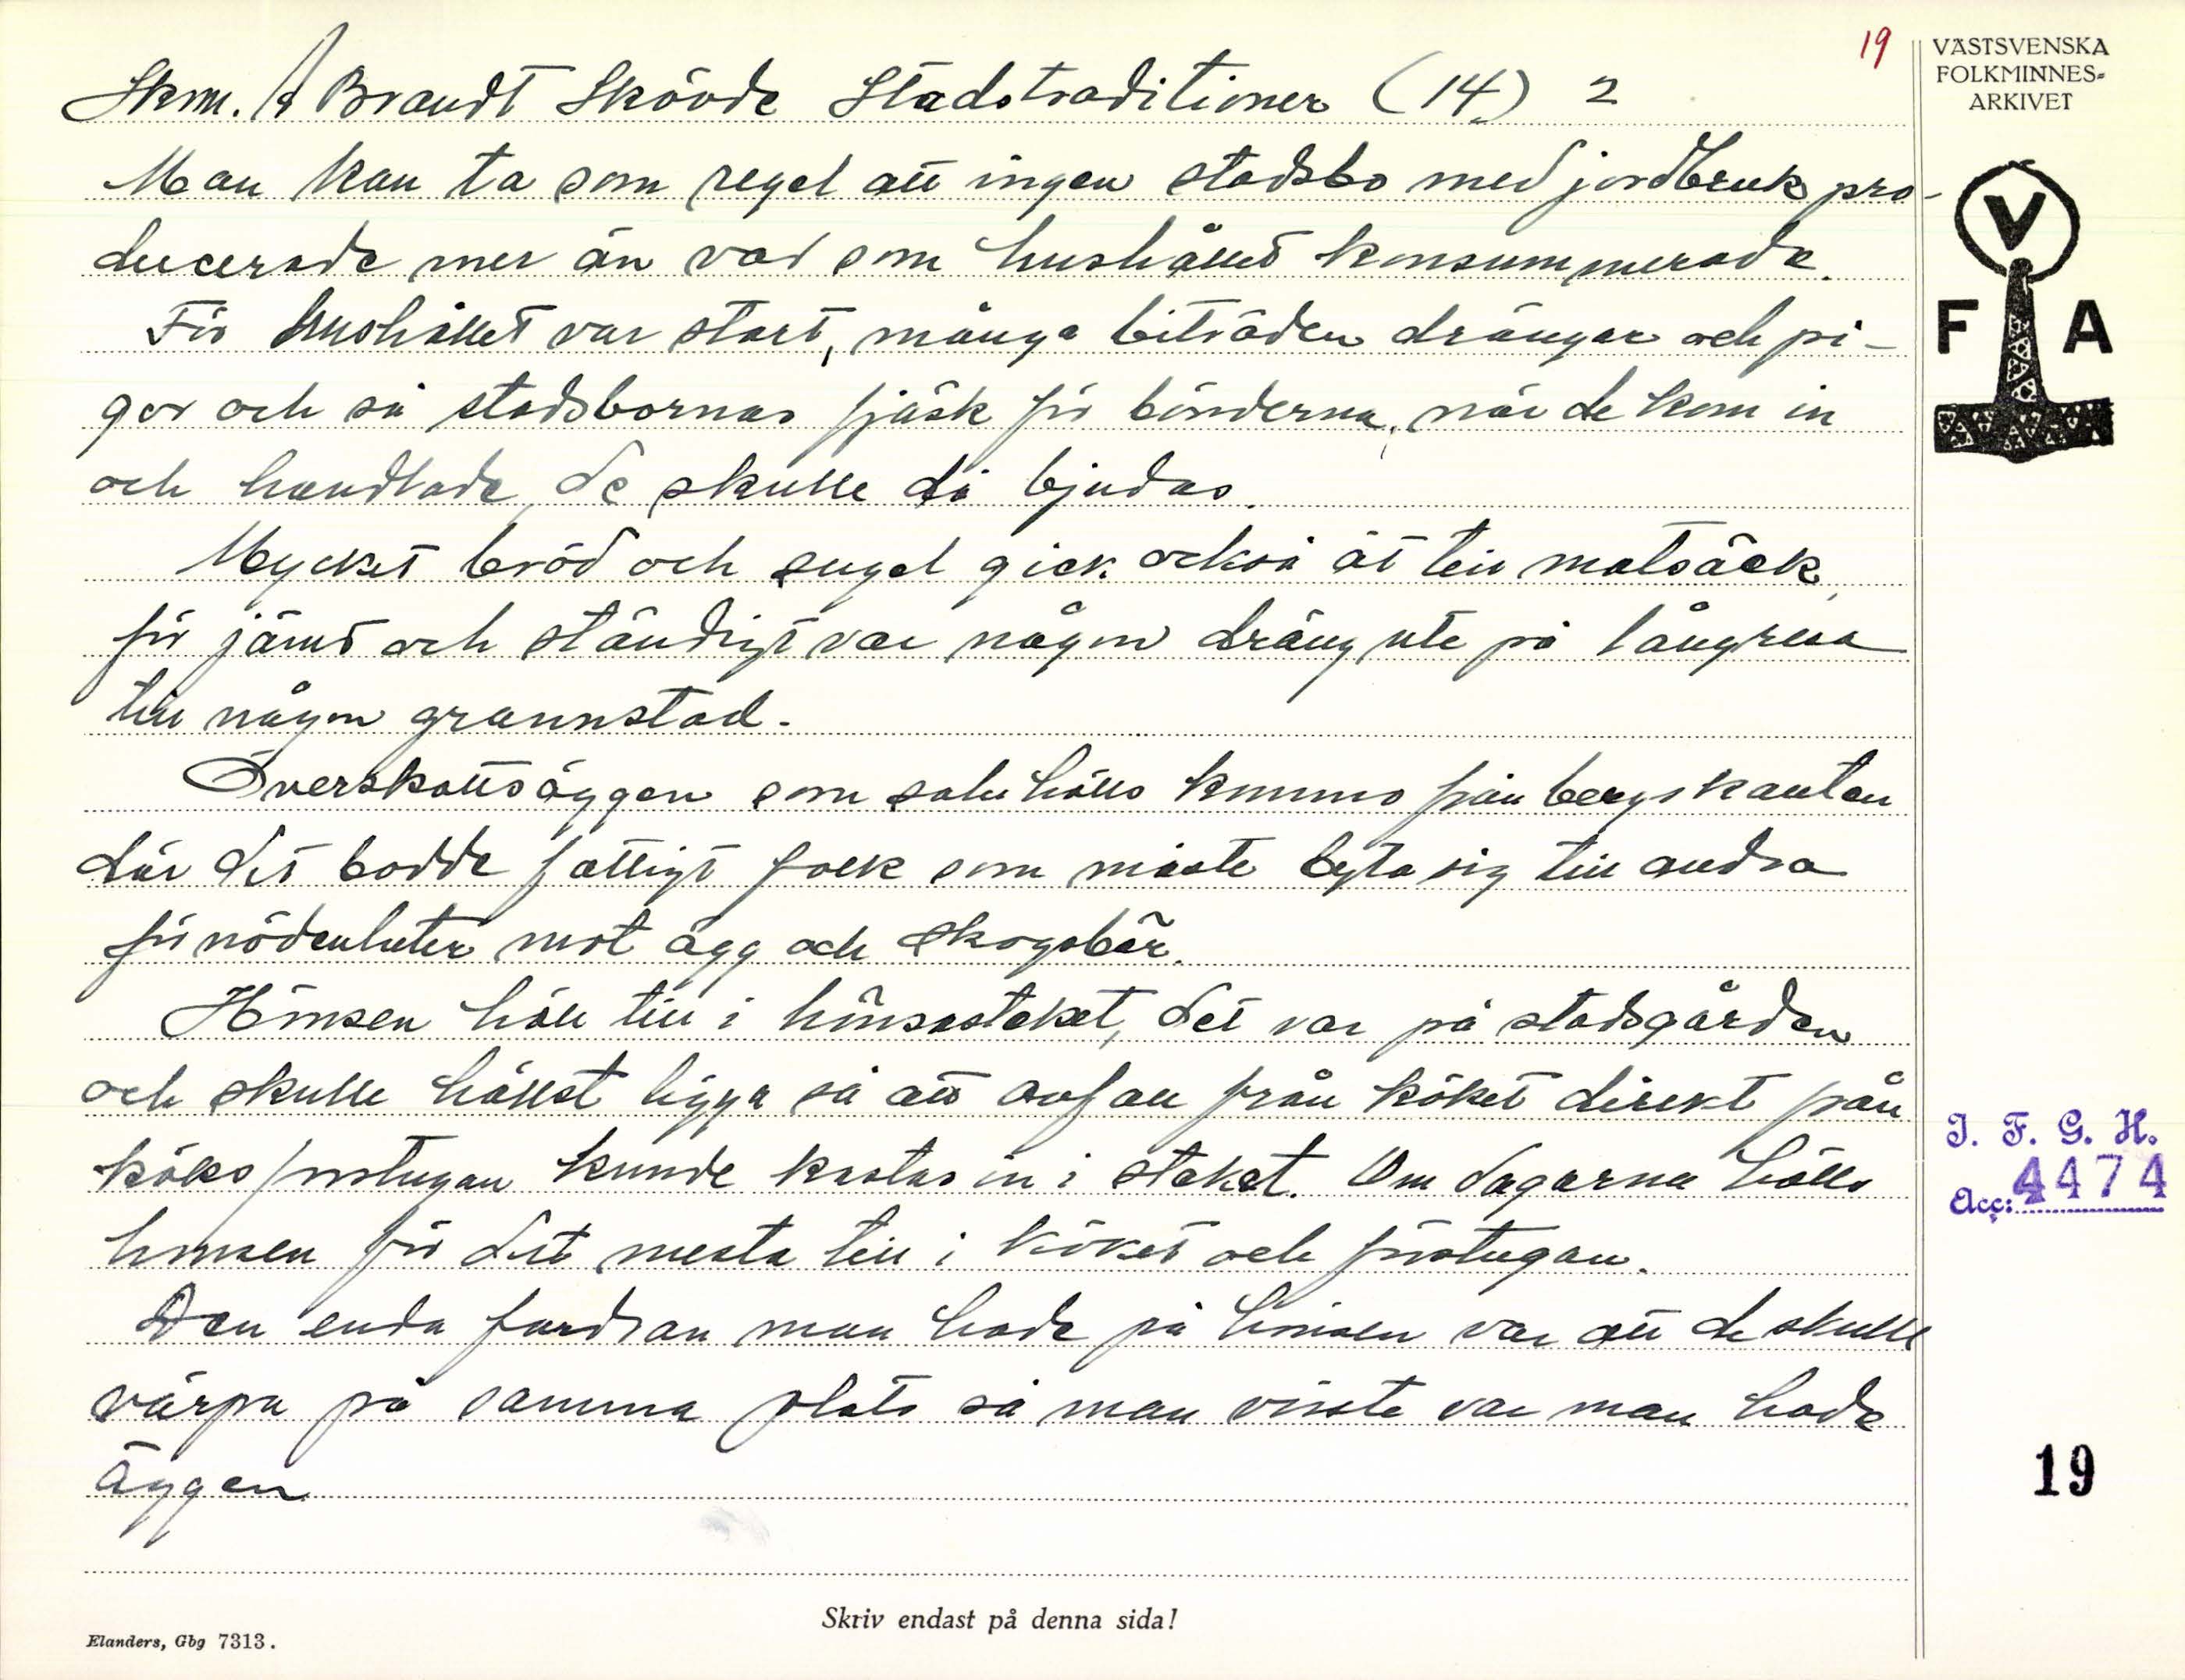 19
VÄSTSVENSKA
FOLKMINNES-
ARKIVET
Brandt Skövde Stadstraditioner (14) 2
Man kan ta som regel att ingen stadsbo med jordbruk pro-
ducerade mer än vad som hushållet konsummerade.
För hushållet var stort, många biträden drängar och pi-
gor och så stadsbornas fjäsk för bönderna, när de kom in
och handlade, de skulle då bjudas.
Mycket bröd och sugel gick också åt till matsäck,
för jämt och ständigt var någon dräng ute på långresa
till någon grannstad.
Överskottsäggen som salu hölls kommo från bergskanten
där det bodde fattigt folk som måste byta sig till andra
förnödenheter mot ägg och skogsbär.
Hönsen höll till i hönsstaket, det var på stadsgården
och skulle hällst ligga så att avfall från köket direkt från
köksförstugan kunde kastas in i staket. Om dagarna hölls
hönsen för det mesta till i köket och förstugan.
Den enda fordran man hade på hönsen var att de skulle
värpa på samma plats så man visste var man hade
äggen
V
F A
I. F. G. H.
Acc: 4474
19
Skriv endast på denna sida!
Elanders, Gbg 7313.